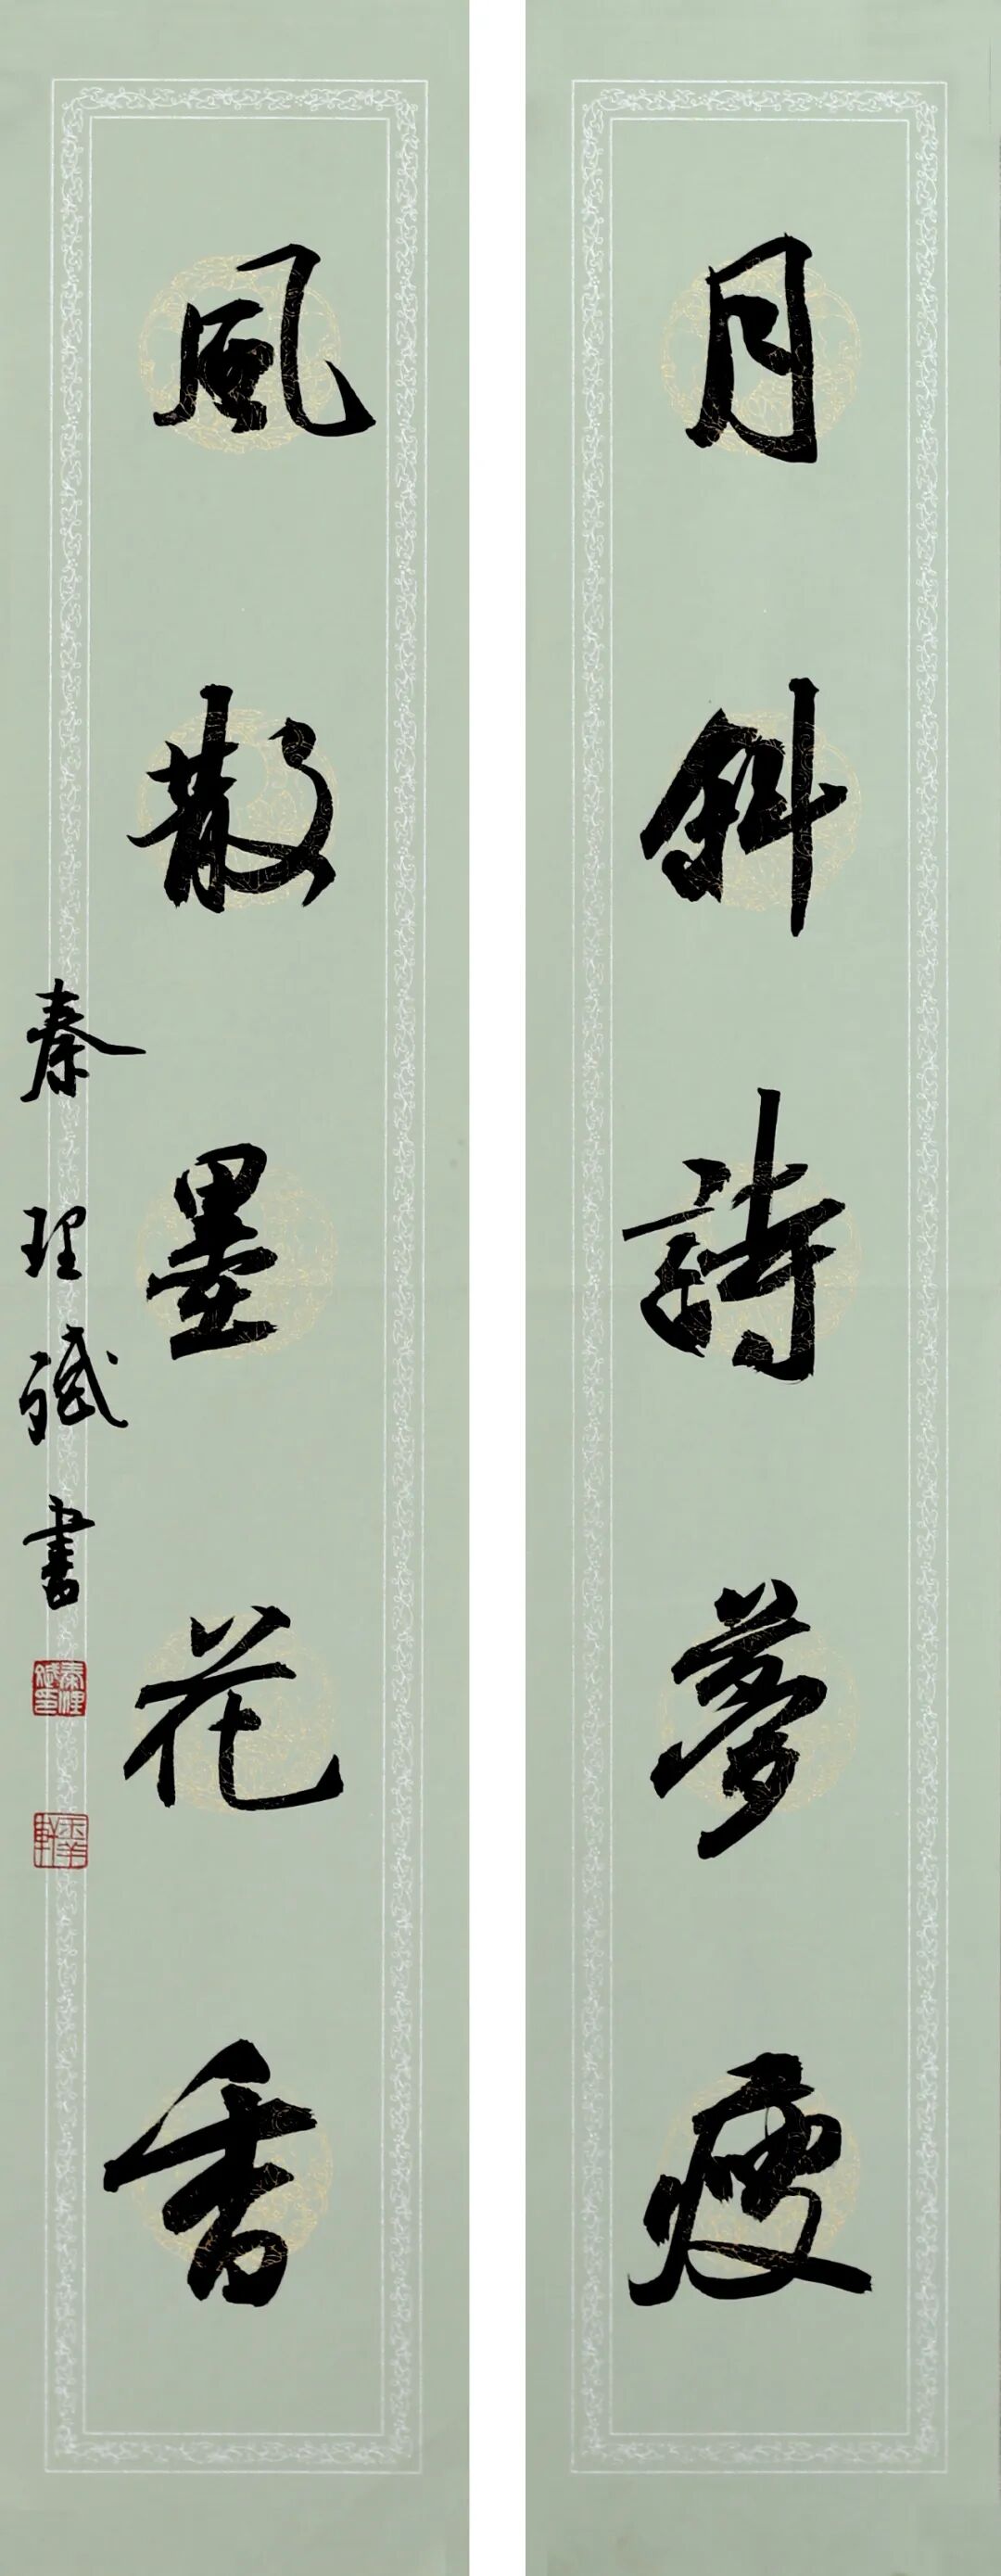 月斜詩夢瘦
風散墨花香
秦理斌書
秦理斌印
玉羊軒